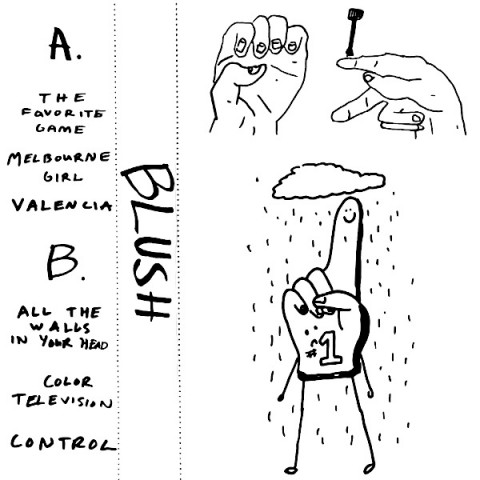 A.
THE
FAVORITE
GAME
MELBOURNE
GIRL
VALENCIA
B.
ALL THE
WALLS
IN YOUR HEAD
COLOR
TELEVISION
CONTROL
BLUSH
#1